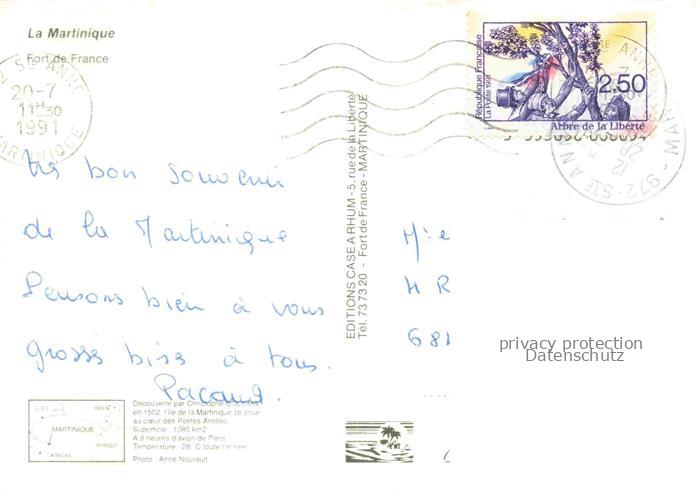 La Martinique
Fort de France
972 STE ANNE
20-7
11H30
1991
MARTINIQUE
République Française
La Poste 1991
2,50
Arbre de la Liberté
972-STE ANNE
très bon souvenir
de la Martinique
Pensons bien à vous
grosses bises à tous.
Pacaud.
EDITIONS CASE A RHUM - 5, rue de la Liberté
Tél. 73 73 20 - Fort de France - MARTINIQUE
4 R
privacy protection
Datenschutz
MARTINIQUE
PARIS
AFRIQUE
CARACAS
Découverte par Christophe
en 1502, l'île de la Martinique se situe
au cœur des Petites Antilles
Superficie : 1080 km2
A 8 heures d'avion de Paris
Température : 28° C toute l'année
Photo : Anne Nourault